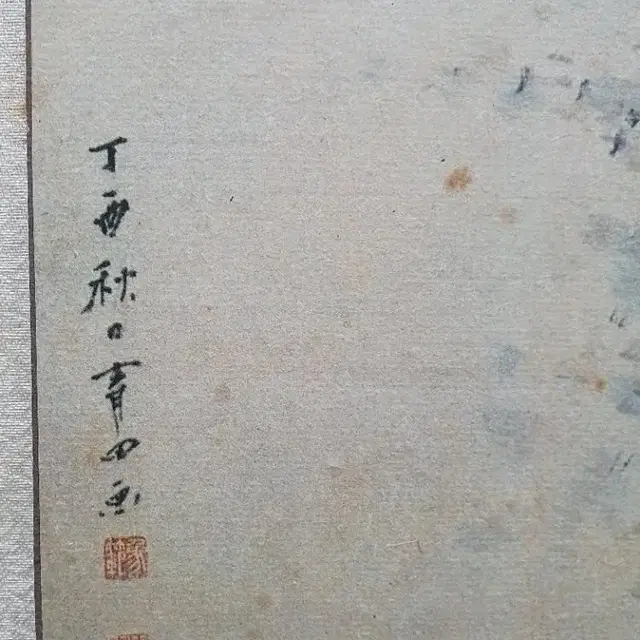 丁酉秋日青田画